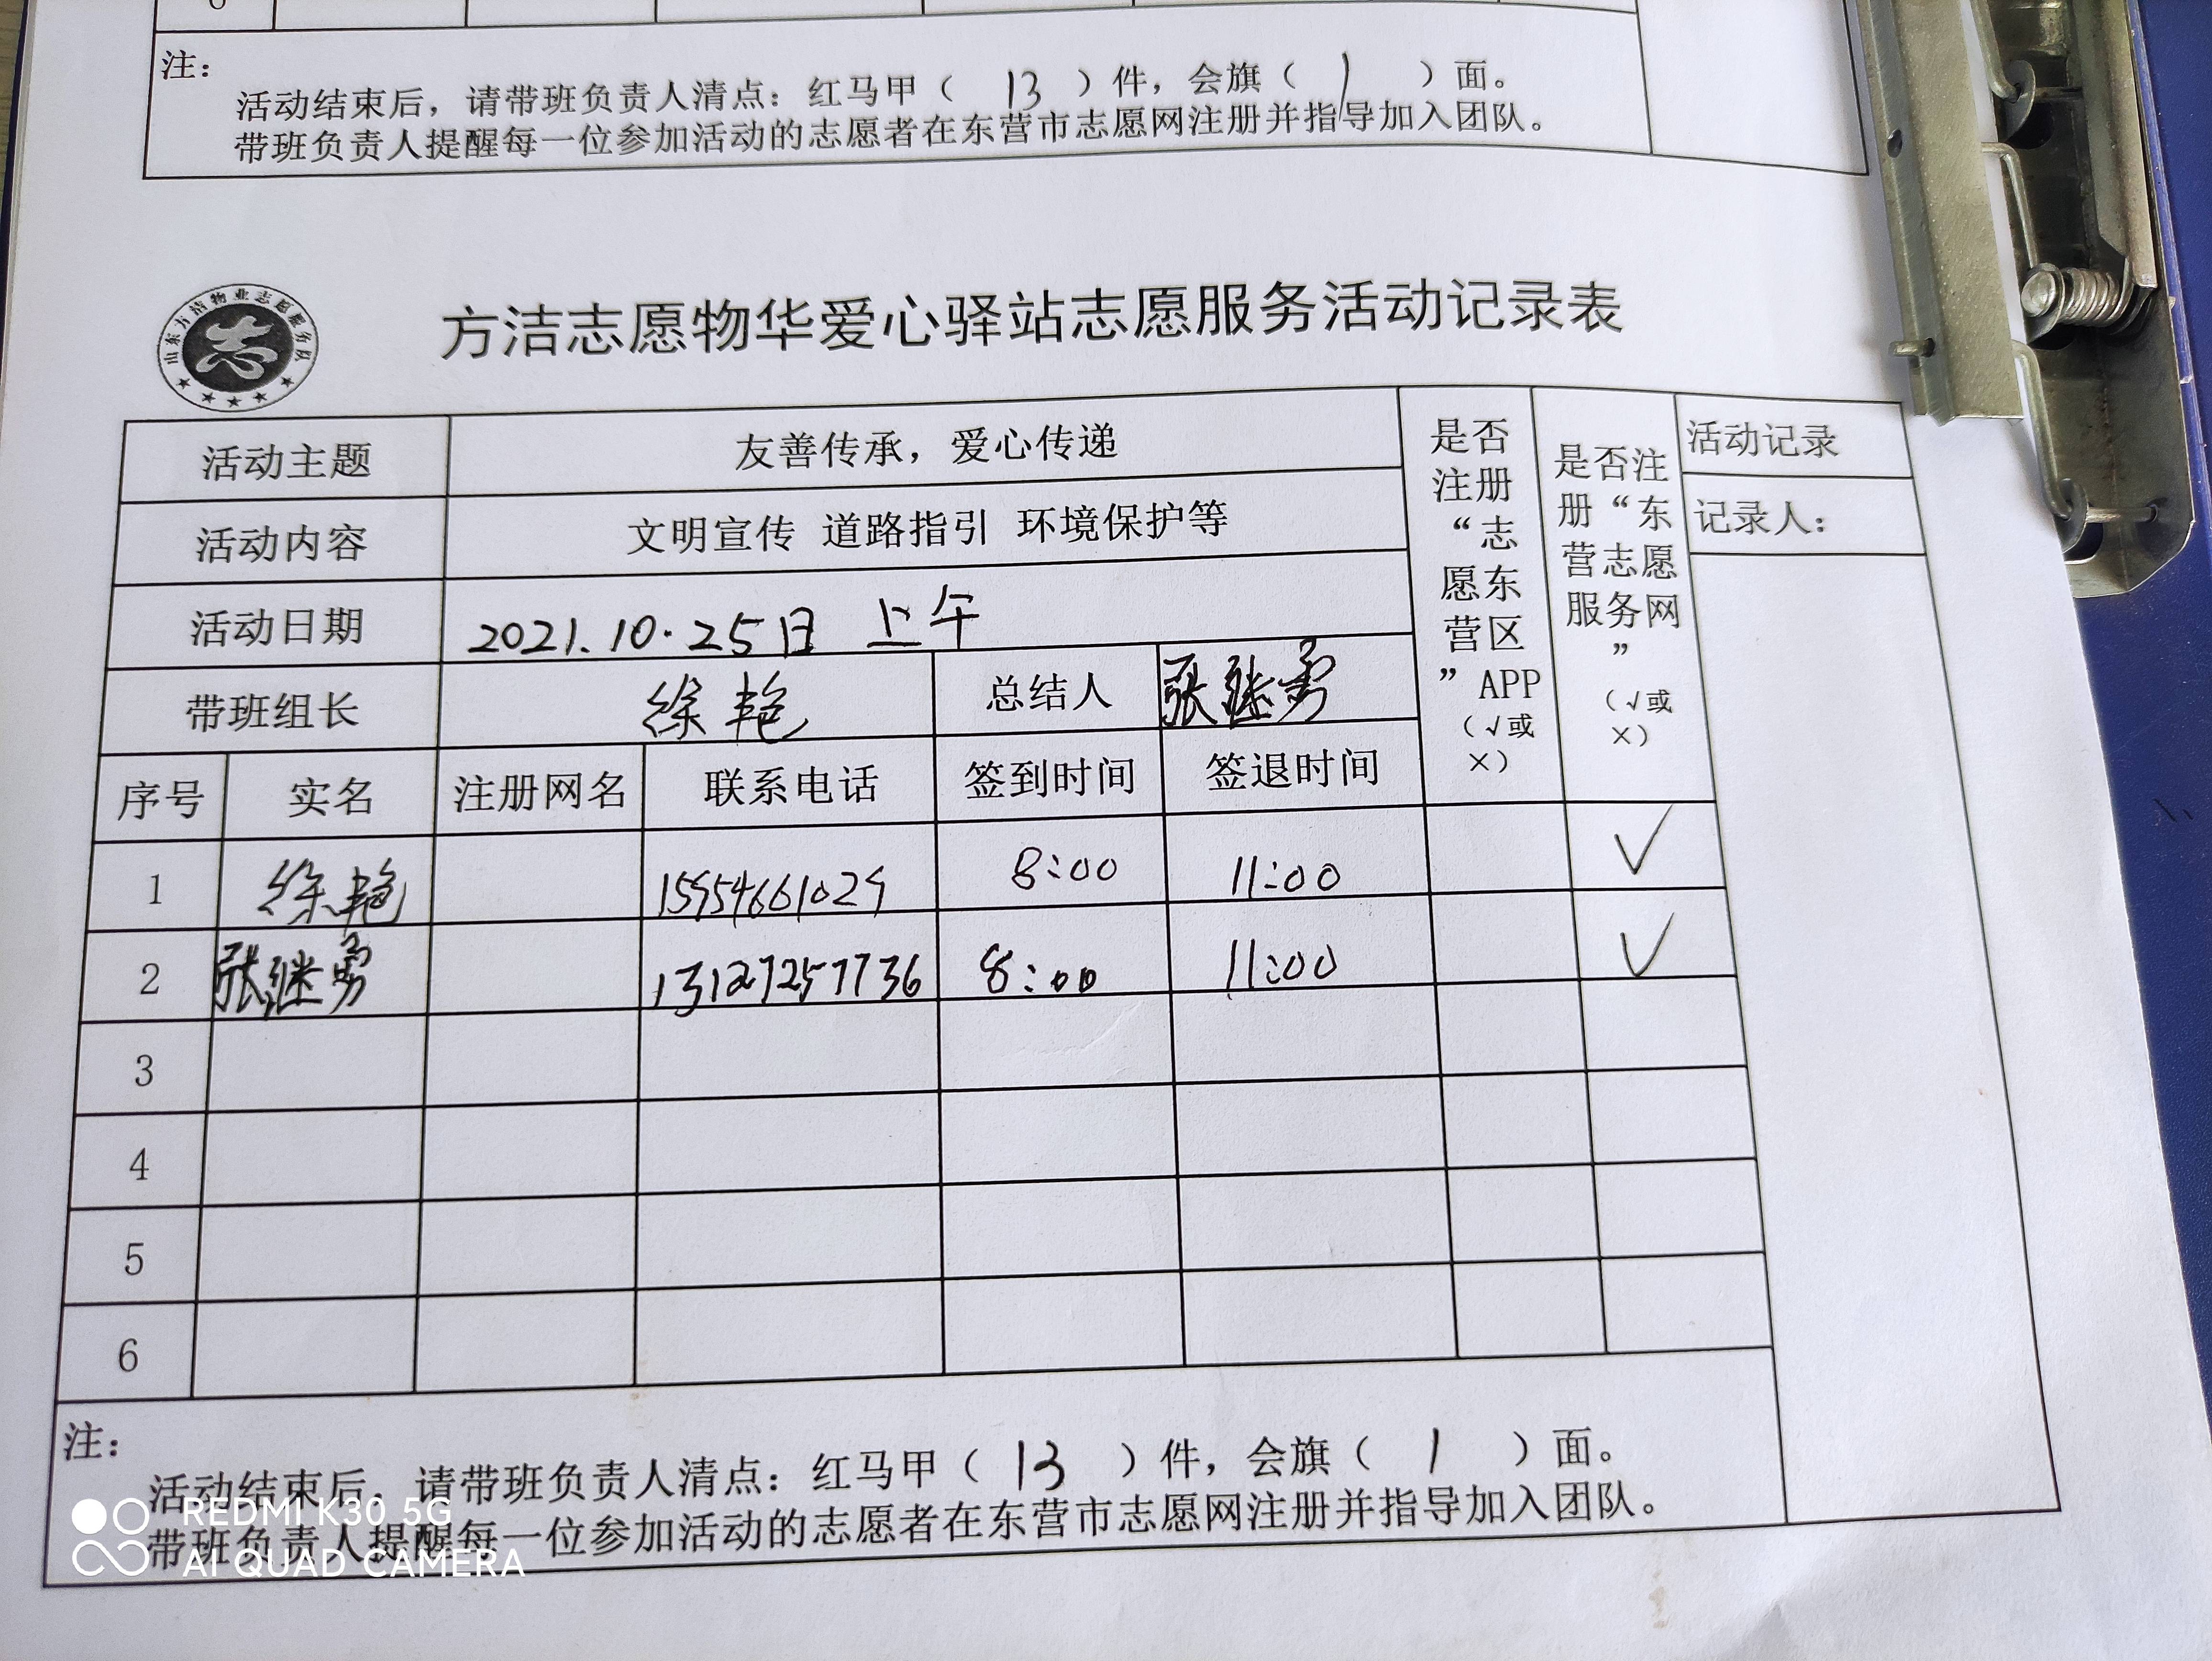 6
注：
活动结束后，请带班负责人清点：红马甲（ 13 ）件，会旗（ 1 ）面。
带班负责人提醒每一位参加活动的志愿者在东营市志愿网注册并指导加入团队。
山东方洁物业志愿服务队
方洁志愿物华爱心驿站志愿服务活动记录表
活动主题 友善传承，爱心传递
活动内容 文明宣传 道路指引 环境保护等
活动日期 2021.10.25日 上午
带班组长 徐艳 总结人 张继勇
序号 实名 注册网名 联系电话 签到时间 签退时间
是否
注册
“志
愿东
营区
”APP
（√或
×）
是否注
册“东
营志愿
服务网
”
（√或
×）
活动记录
记录人：
1 徐艳 15954661029 8:00 11:00 √
2 张继勇 13127257736 8:00 11:00 √
3
4
5
6
注：
活动结束后，请带班负责人清点：红马甲（ 13 ）件，会旗（ 1 ）面。
带班负责人提醒每一位参加活动的志愿者在东营市志愿网注册并指导加入团队。
REDMI K30 5G
AI QUAD CAMERA